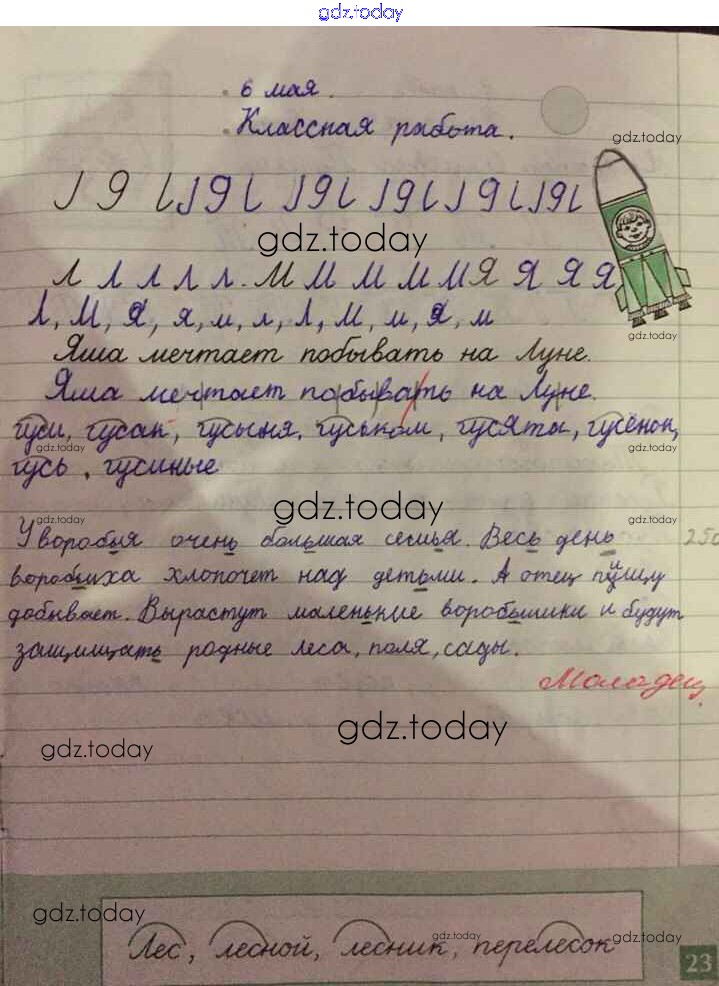 gdz.today
6 мая.
Классная работа.
gdz.today
gdz.today
Л Л Л Л Л. М М М М М Я Я Я Я
Л, М, Я, я, м, л, Л, М, м, Я, м
gdz.today
Яша мечтает побывать на Луне.
Яша мечтает побывать на Луне.
гуси, гусак, гусыня, гуськом, гусята, гусёнок,
gdz.today gdz.today gdz.today
гусь, гусиные
gdz.today
gdz.today gdz.today
У воробья очень большая семья. Весь день
250
воробьиха хлопочет над детьми. А отец пищу
добывает. Вырастут маленькие воробьишки и будут
защищать родные леса, поля, сады.
Молодец
gdz.today
gdz.today
gdz.today
Лес, лесной, лесник, перелесок
gdz.today gdz.today
23